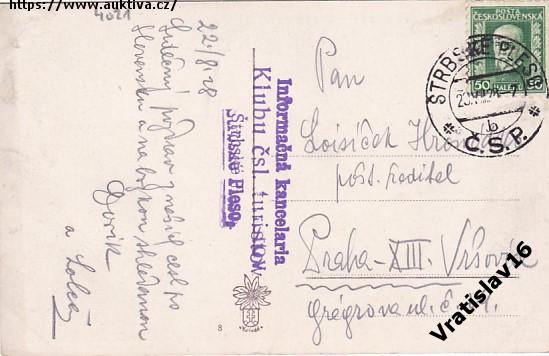 https://www.auktiva.cz/
4021
22./8 28
Srdečný pozdrav z naší cesty po
Slovensku a na brzkou shledanou
a
Informačná kancelaria
Klubu čsl. turistow
Štrbské Pleso
POŠTA
ČESKOSLOVENSKÁ
50 HALÉŘŮ 50
ŠTRBSKÉ PLESO
b
Č.S.P.
Pan
Loisíček
pošt. ředitel
Praha-XIII. Vršovice
Grégrova ul. č.
8
Vratislav16